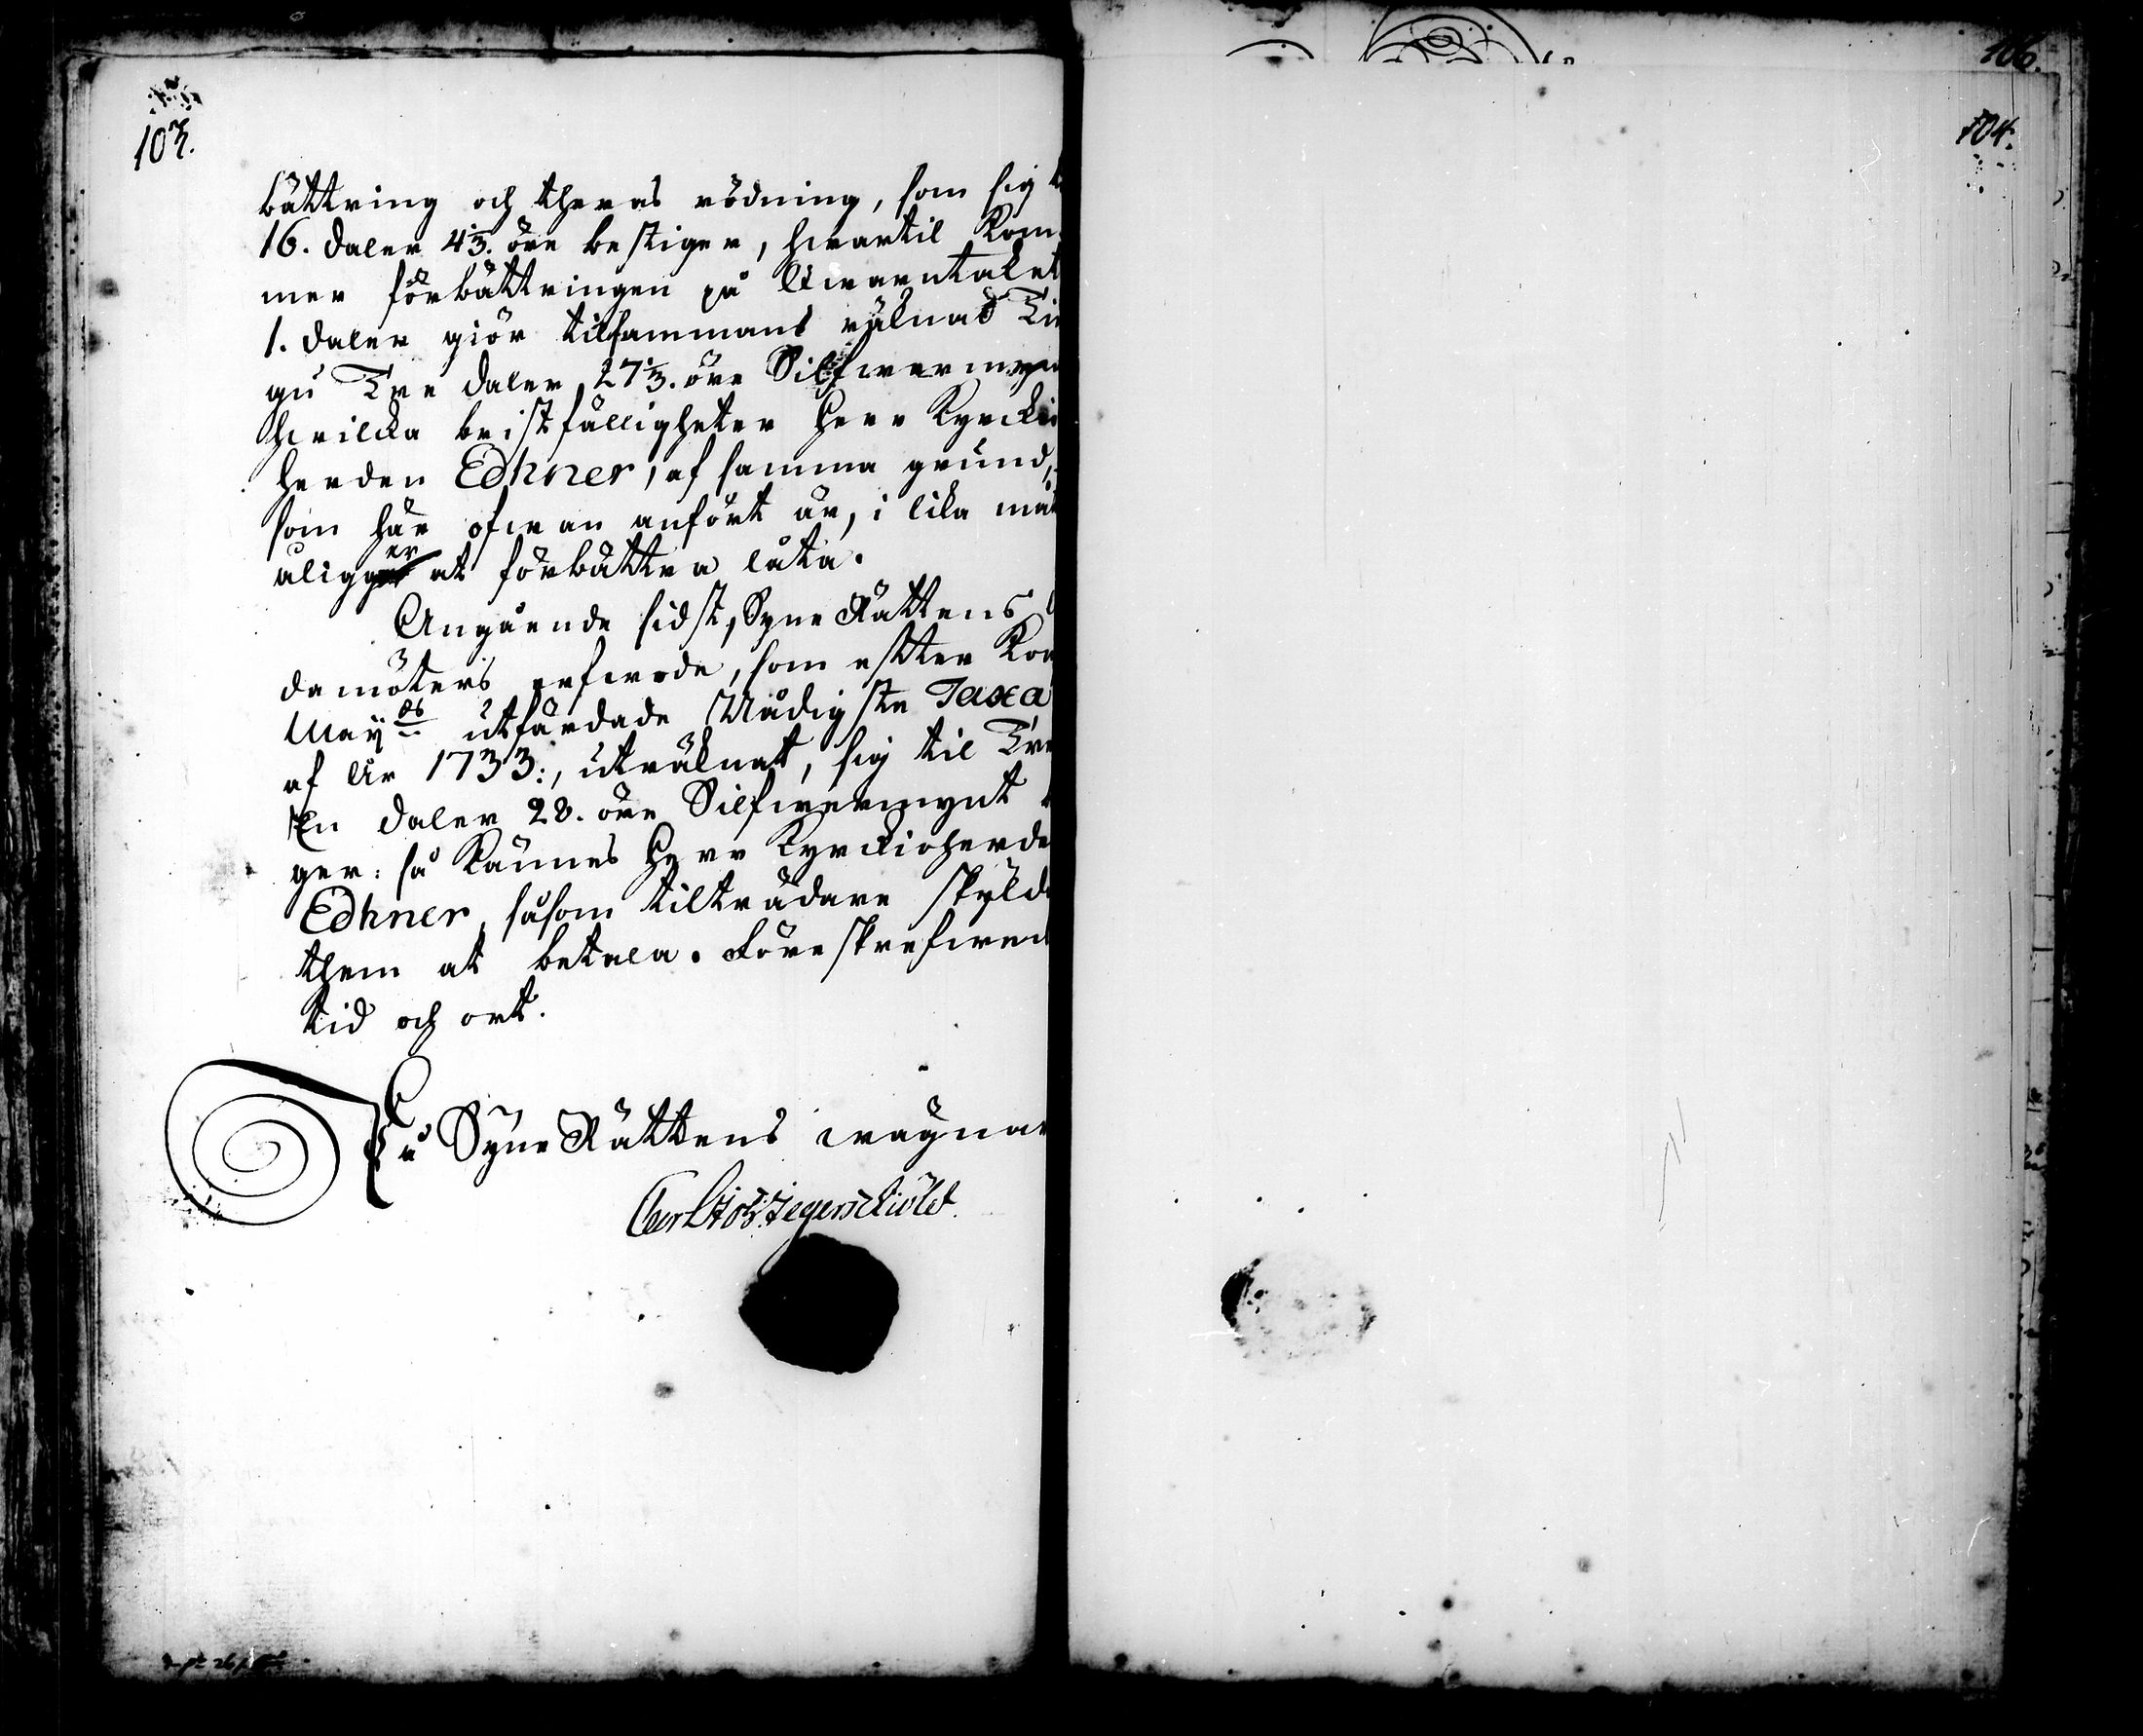 103.
bättring och theras rödning, som sig
16. daler 4 1/3. öre bestiger, hwartil kom-
mer förbättringen på Qwarntaket
1. daler giör tilsammans räknad Tiu
gu Tre daler 27 1/3. öre Silfwermynt
hwilcka bristfälligheter Herr Kyrckio
herden Edhner, af samma grund,
som här ofwan anfört är, i lika måt
åligger at förbättra låta.
Angående sidst, Syne Rättens
damöters arfwode, som effter Kon
May:ts utfärdade Nådigste Taxa
af År 1733:, uträknat, sig til Tre
En daler 28. öre Silfwermynt
ger: så kännes Herr Kyrckioherde
Edhner, såsom tilträdare skyld
them at betala. Föreskrefwen
tid och ort.
På Syne Rättens wägnar
Jegerschiöld
106.
104.